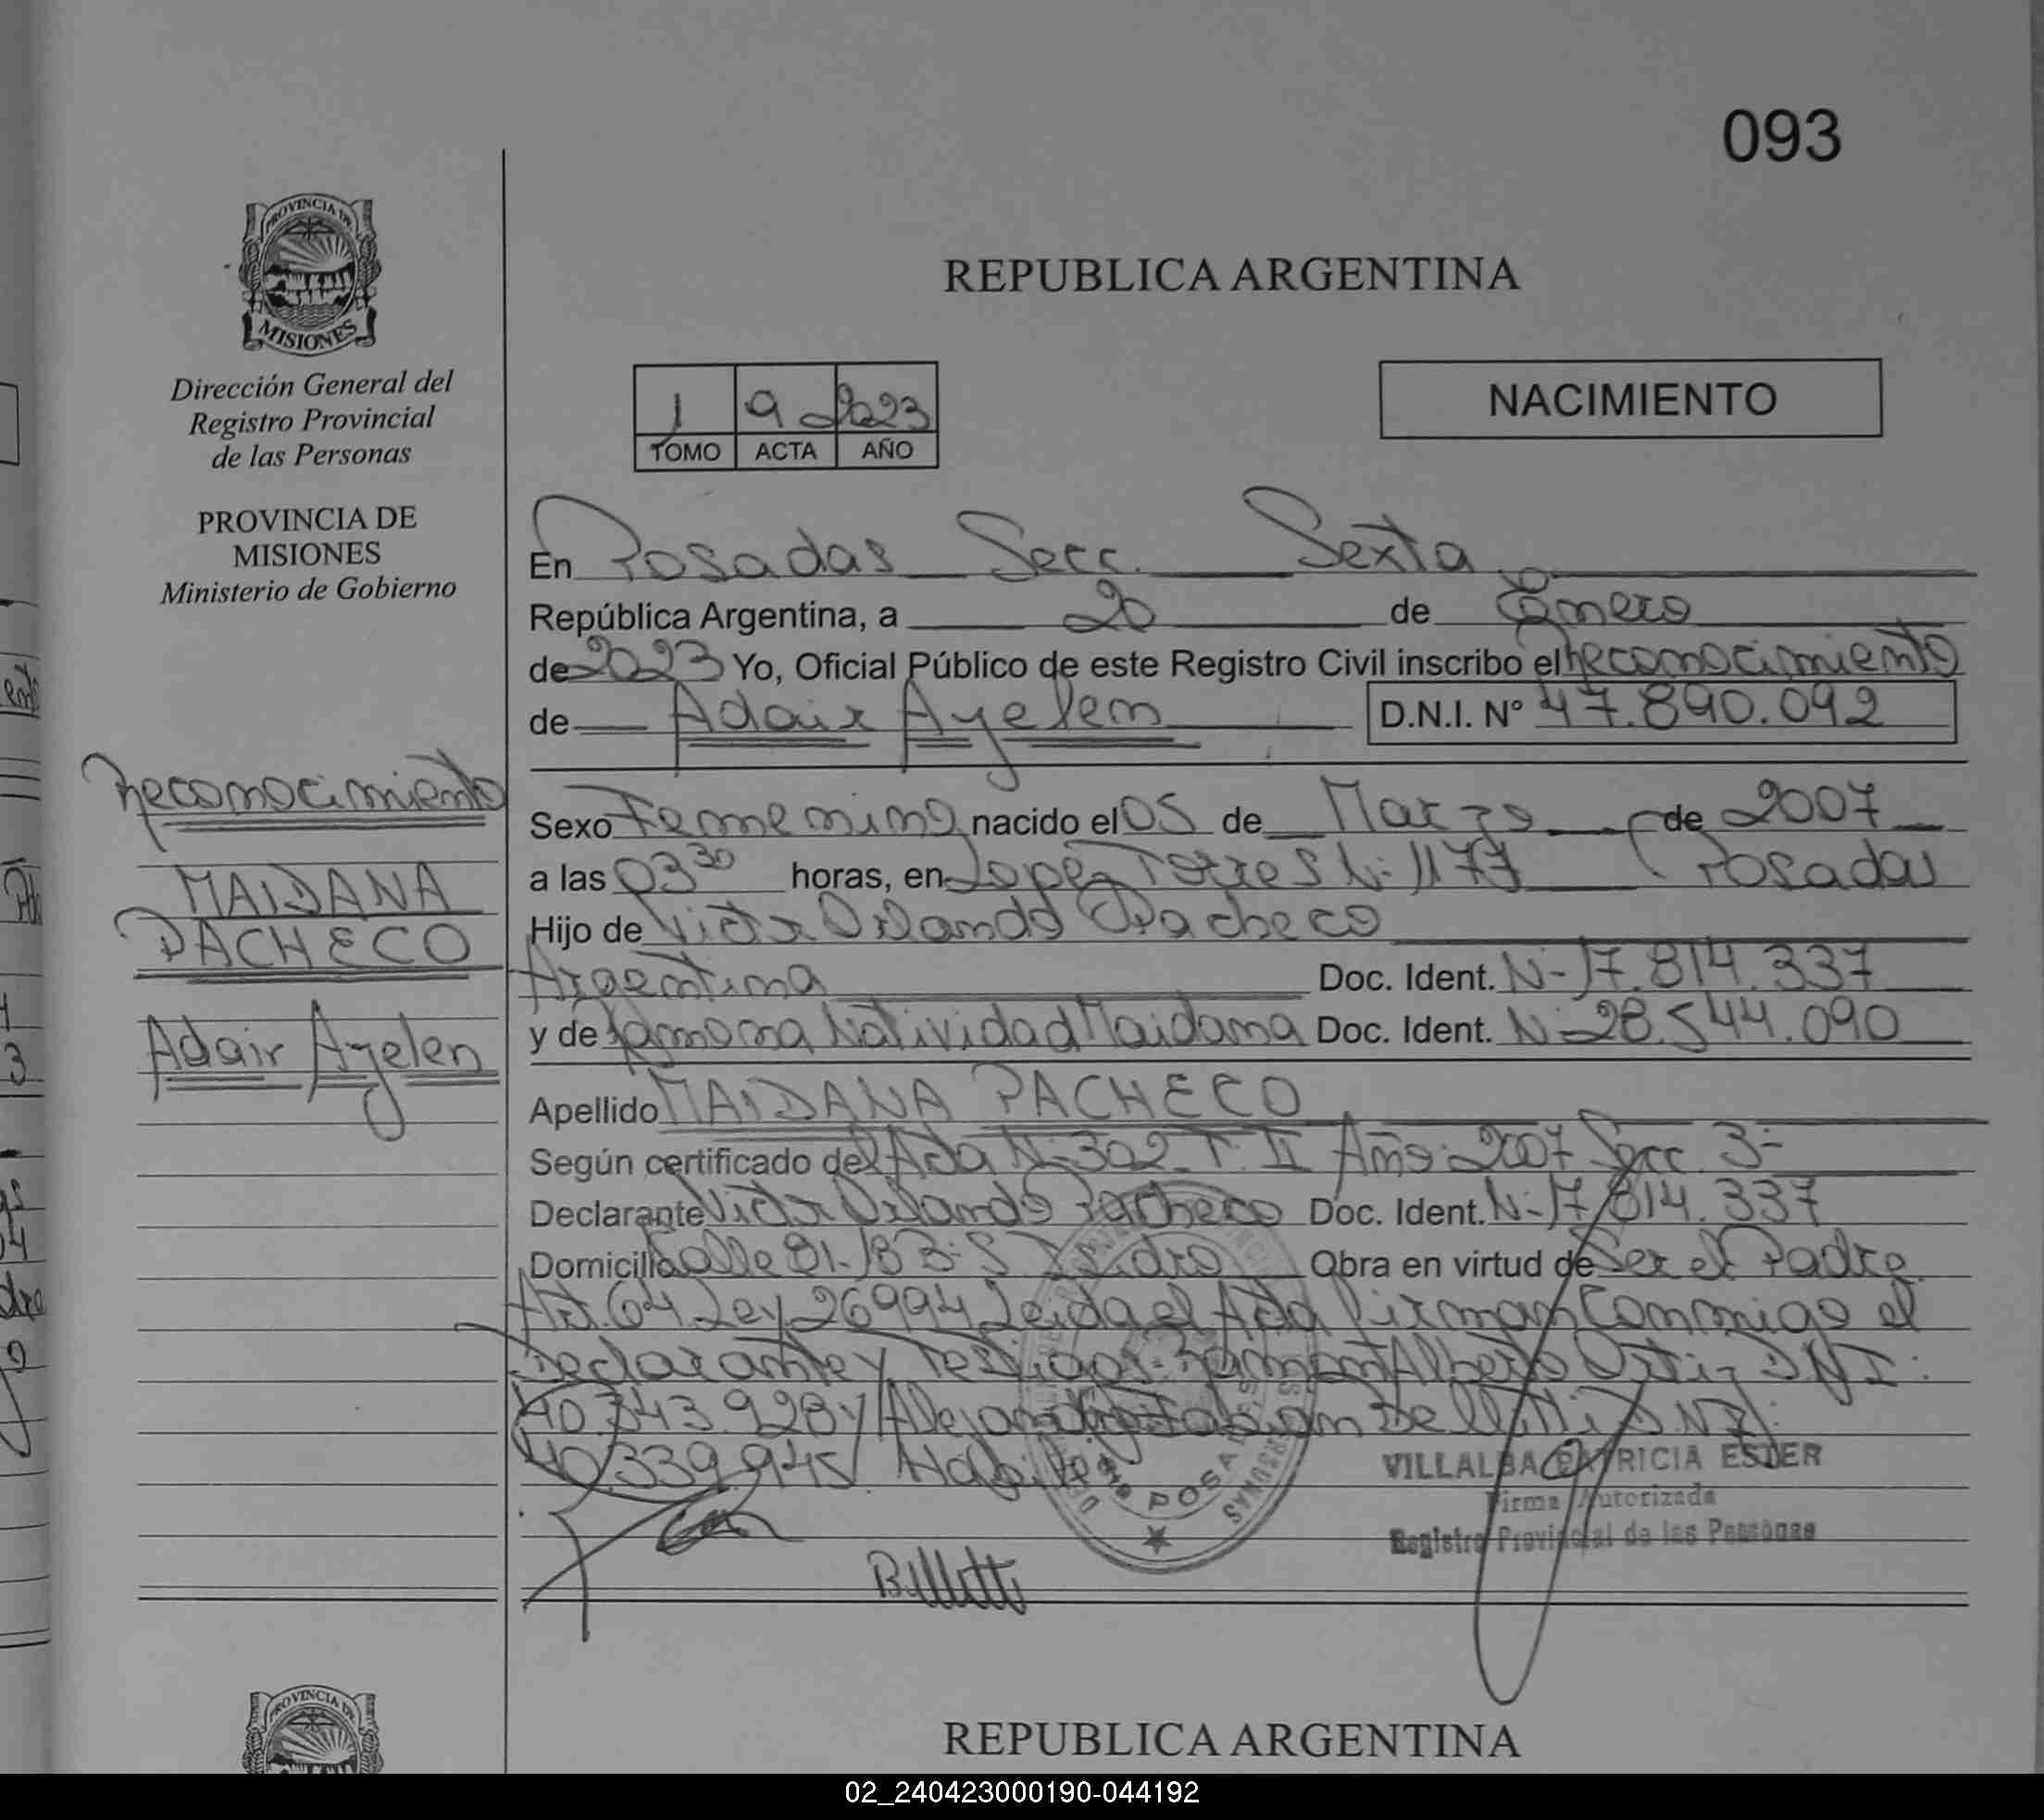 093
PROVINCIA DE
MISIONES
Dirección General del
Registro Provincial
de las Personas
PROVINCIA DE
MISIONES
Ministerio de Gobierno
Reconocimiento
MAIDANA
PACHECO
Adair Ayelen
REPUBLICA ARGENTINA
1 9 2023
TOMO ACTA AÑO
NACIMIENTO
En Posadas Secc. Sexta
República Argentina, a 20 de Enero
de 2023 Yo, Oficial Público de este Registro Civil inscribo el Reconocimiento
de Adair Ayelem D.N.I. N° 47.890.092
Sexo Femenino nacido el 05 de Marzo de 2007
a las 03 30 horas, en Lopez Torres N- 1177 Posadas
Hijo de Victor Orlando Pacheco
Argentina Doc. Ident. N- 17.814.337
y de Ramona Natividad Maidana Doc. Ident. N- 28.544.090
Apellido MAIDANA PACHECO
Según certificado del Acta N- 302 T. II Año: 2007 Secc. 3-
Declarante Victor Orlando Pacheco Doc. Ident. N- 17.814.337
Domicilio Calle 81. Obra en virtud de Ser el Padre
Art. 64 Ley 26994 Leida el Acta firman Conmigo el
Declarante y Testigos: Ramon Alberto Ortiz DNI:
40.343.928 y Alejandro Fabian Bellitti DNI:
40.339.945 Habiles
POSADAS
VILLALBA PATRICIA ESTER
Firma Autorizada
Registro Provincial de las Personas
Billitti
PROVINCIA DE
REPUBLICA ARGENTINA
02_240423000190-044192